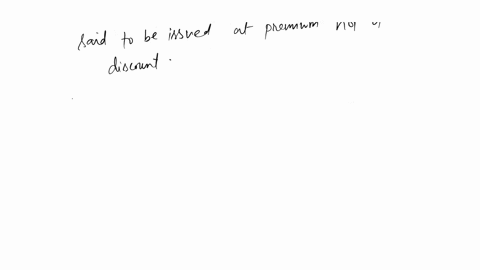 said to be issued at premium not
discount.